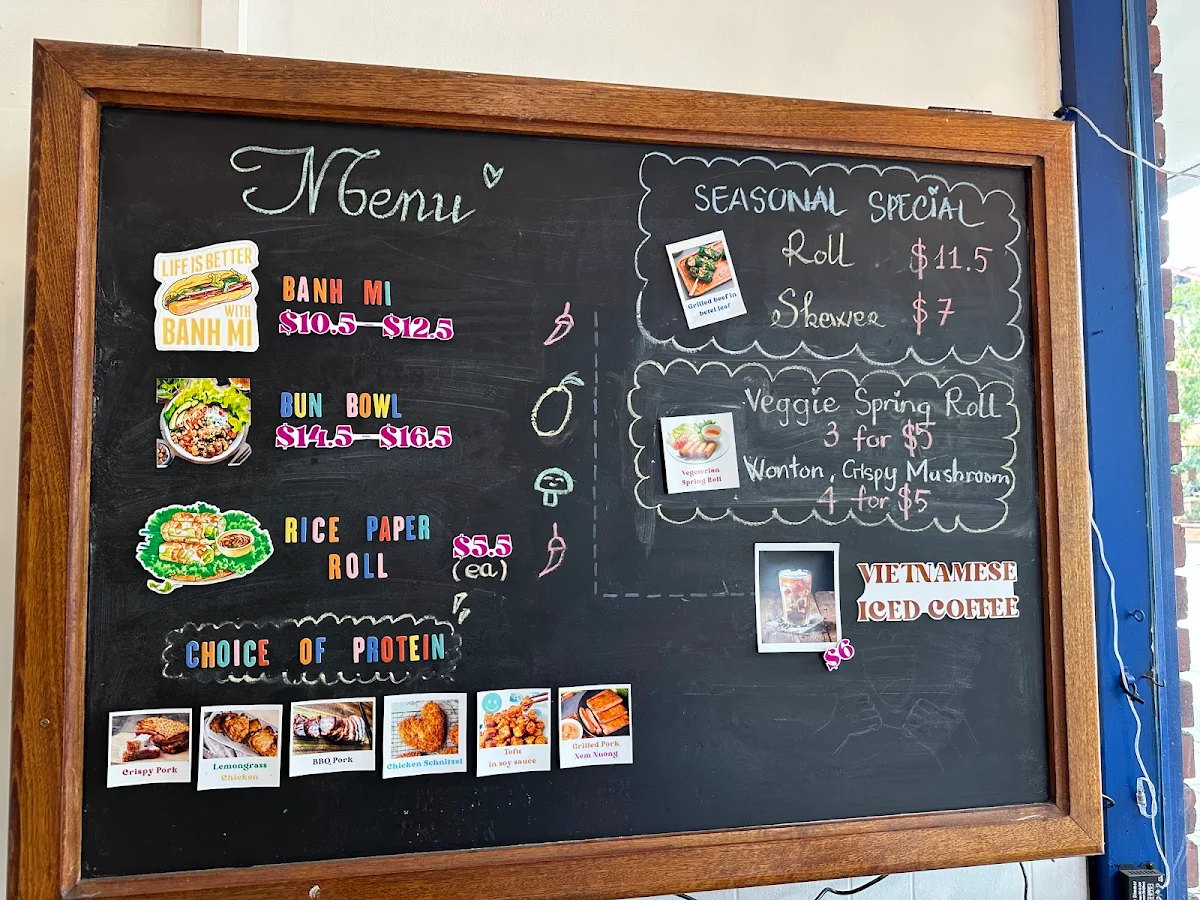 Menu
LIFE IS BETTER
WITH
BANH MI
BANH MI
$10.5—$12.5
BUN BOWL
$14.5—$16.5
RICE PAPER
ROLL
$5.5
(ea)
CHOICE OF PROTEIN
Crispy Pork
Lemongrass
Chicken
BBQ Pork
Chicken Schnitzel
Tofu
in soy sauce
Grilled Pork
Nem Nuong
SEASONAL SPECIAL
Grilled beef in
betel leaf
Roll $11.5
Skewer $7
Veggie Spring Roll
3 for $5
Vegeterian
Spring Roll
Wonton, Crispy Mushroom
4 for $5
VIETNAMESE
ICED COFFEE
$6